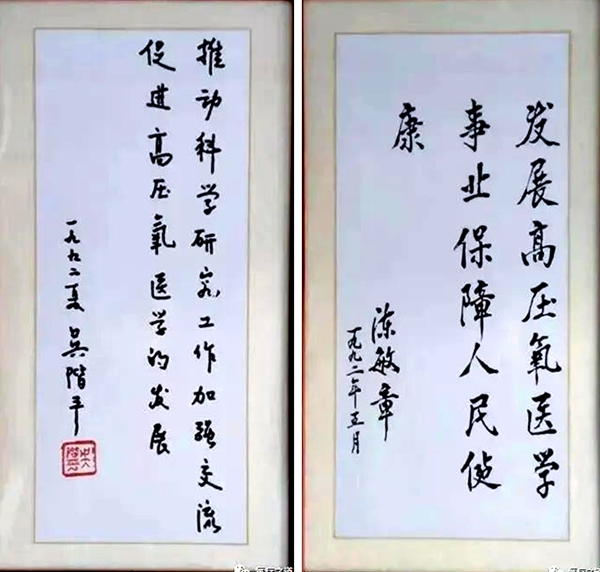 推动科学研究工作加强交流
促进高压氧医学的发展
一九九二夏 吴阶平
发展高压氧医学
事业保障人民健
康
陈敏章
一九九二年五月